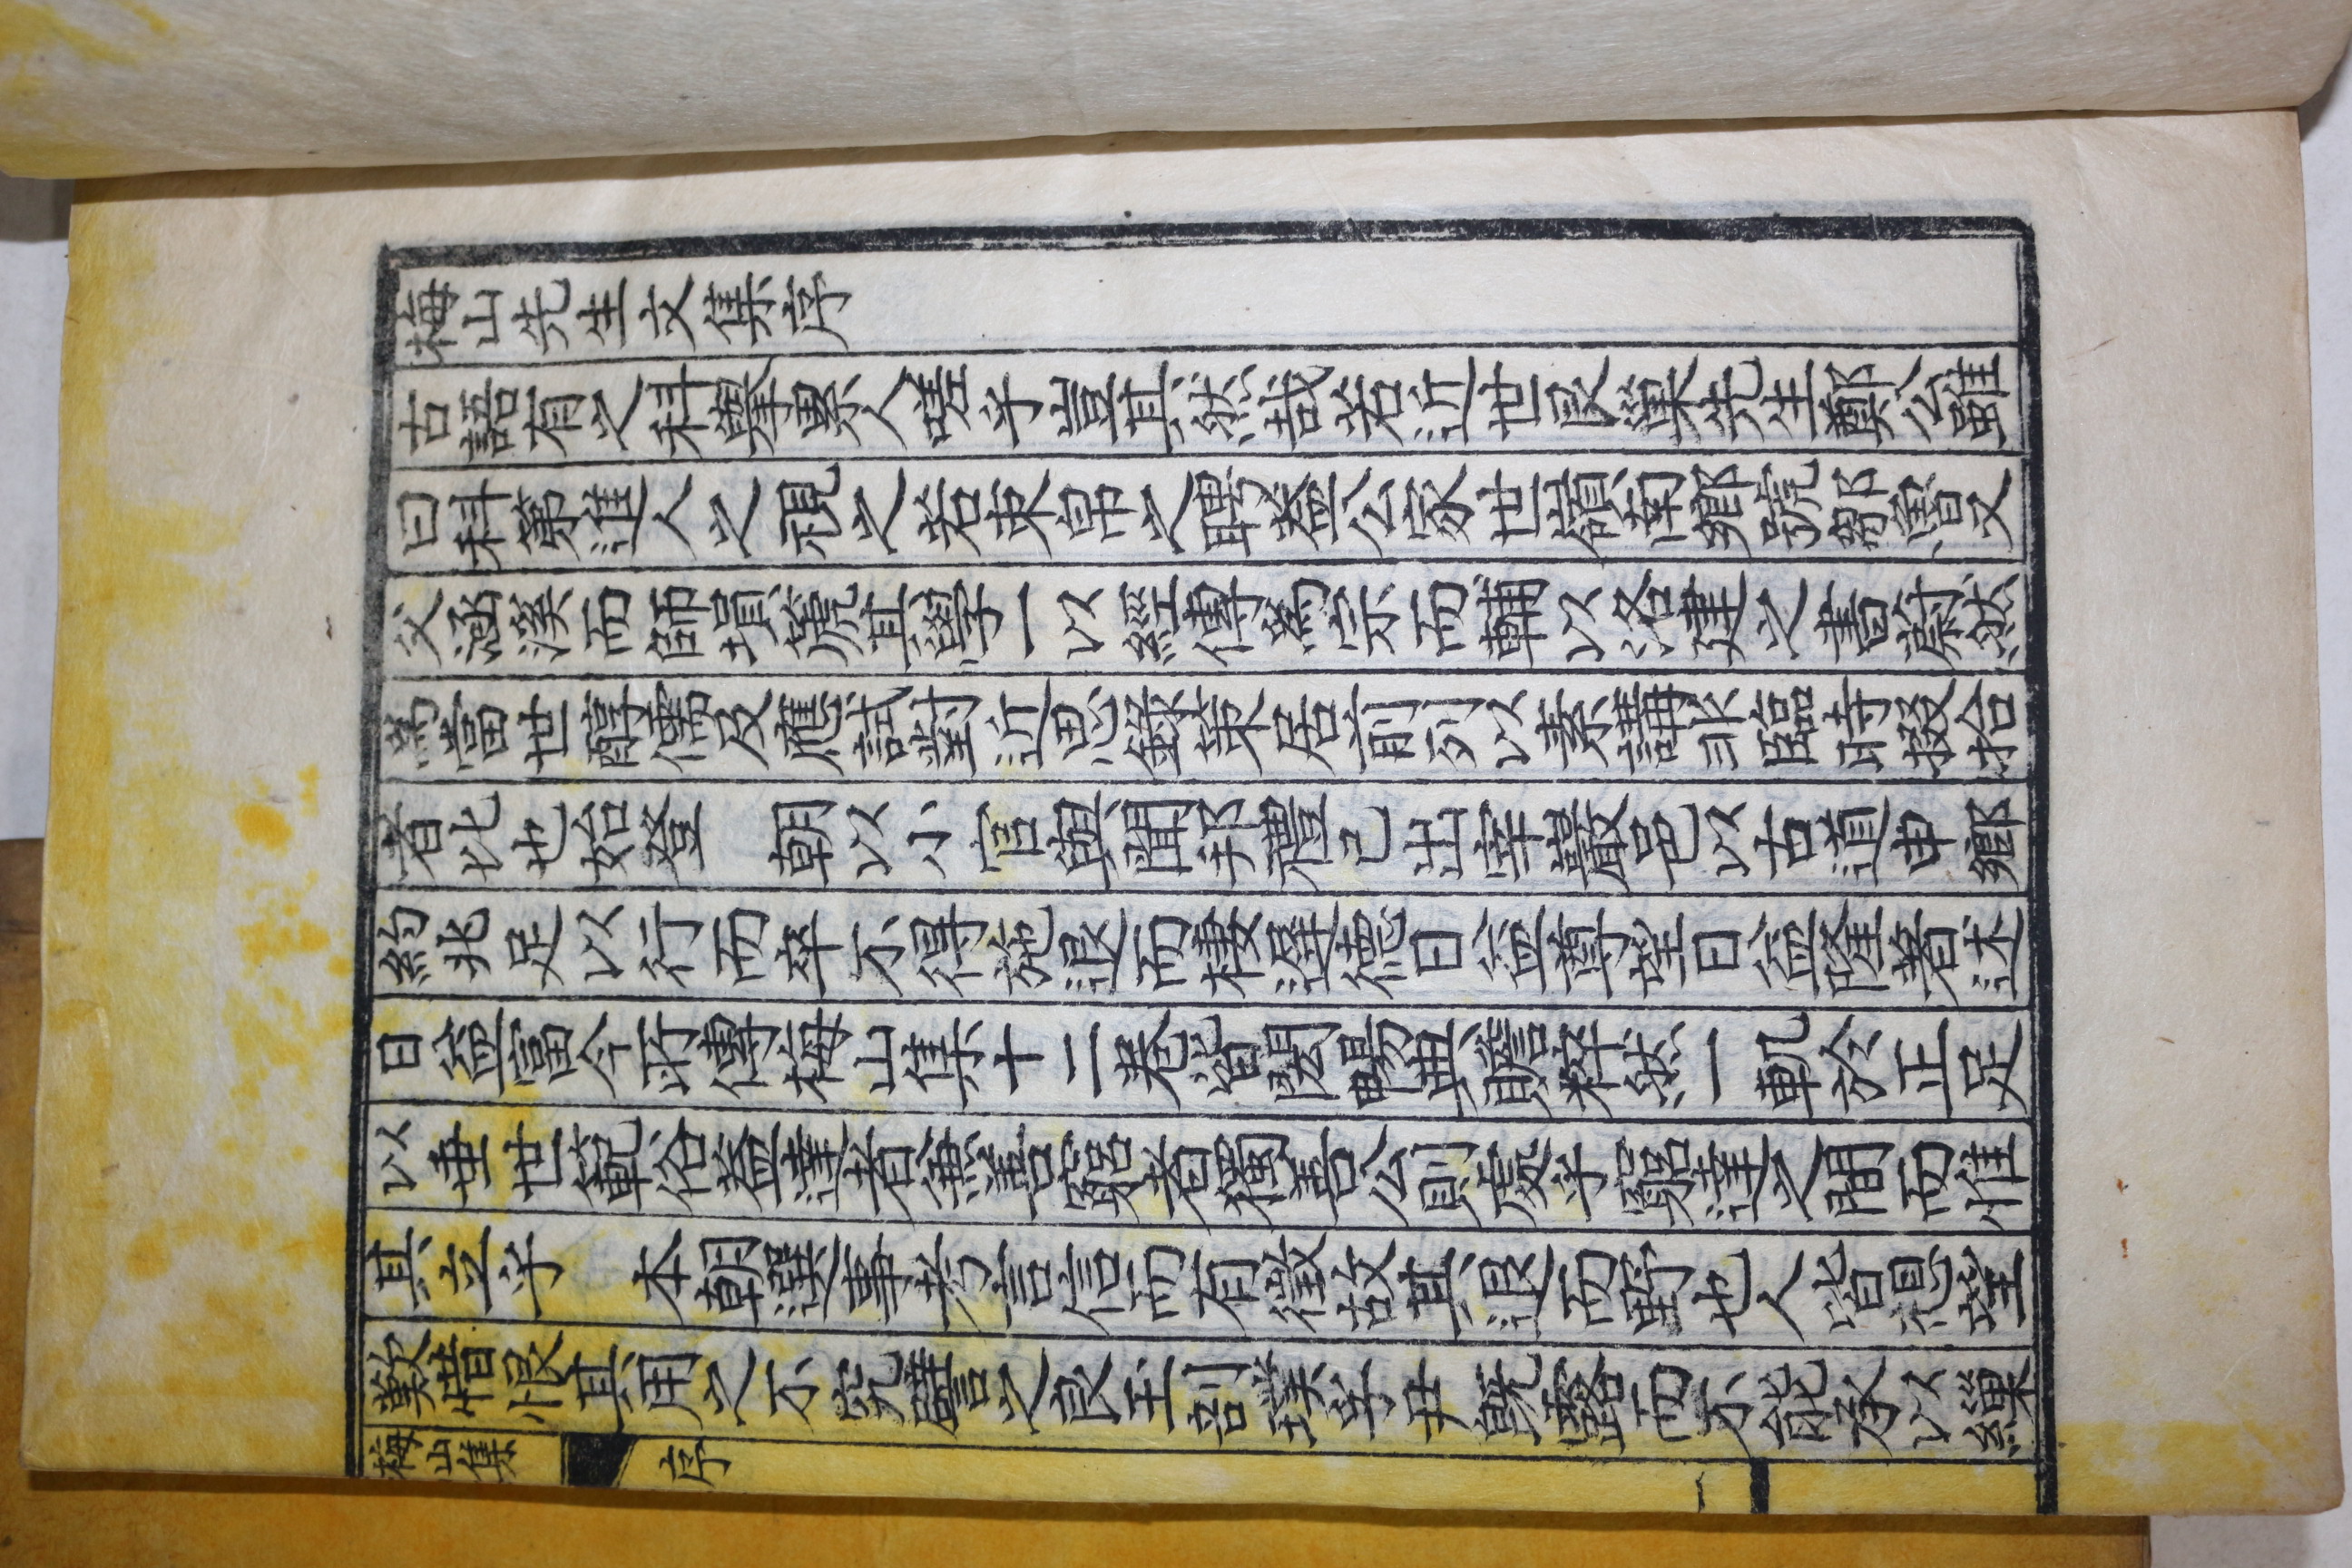 梅山先生文集序
古語有之科擧累人噫乎豈其然哉若近世巢先生鄭公雖
曰科第進人之視之若束帛之聘蓋公家世嶺南鄕號鄒魯又
父涵溪而師塤篪其學一以經傳爲宗而輔以洛建之書蔚然
爲當世醇儒及應試對近思錄策居前列以素講非臨時掇拾
者比也始登 朝以小官與聞邦禮已出宰巖邑以古道申鄕
約兆足以行而卒不得施退而棲遲德日益尊望日益隆著述
日益富今所傳梅山集十二卷皆闓鬯典贍粹然一軌於正足
以垂世範俗蓋達者兼善窮者獨善公則處乎窮達之間而惟
其立乎 本朝選事考言信而有徵故其退而野也人皆想望
歎惜恨其用之不究譬之良玉剖璞孚尹旣露而不能承以繅
梅山集 序 一